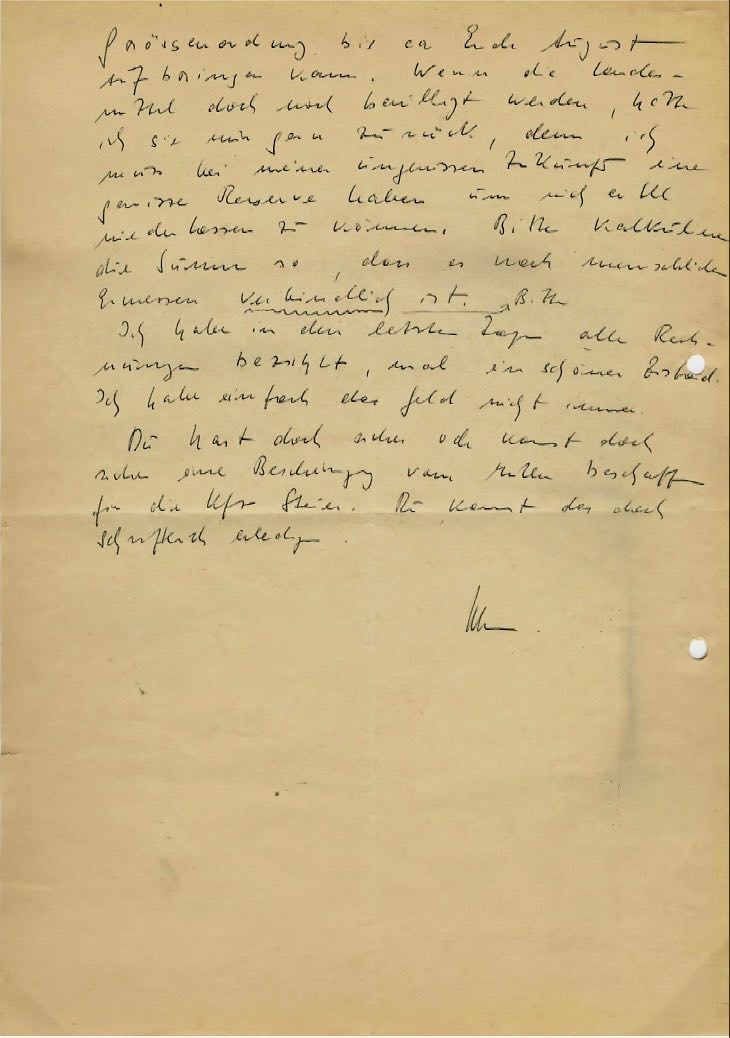 Grössenordnung bis ca Ende August
aufbringen kann. Wenn die Landes-
mittel doch noch bewilligt werden, hätte
ich sie nur gern zurück, denn ich
muss bei meiner ungewissen Zukunft eine
gewisse Reserve haben um mich evtl
niederlassen zu können. Bitte kalkuliere
die Summe so, dass es nach menschlichem
Ermessen verbindlich ist. Bitte
Ich habe in den letzten Tagen alle Rech-
nungen bezahlt, mal ein schöner Zustand.
Ich habe einfach das Geld nicht immer.
Du hast doch sicher oder kannst doch
sicher eine Bescheinigung vom beschaffen
für die Kfz Steuer. Du kannst das doch
schriftlich erledigen.